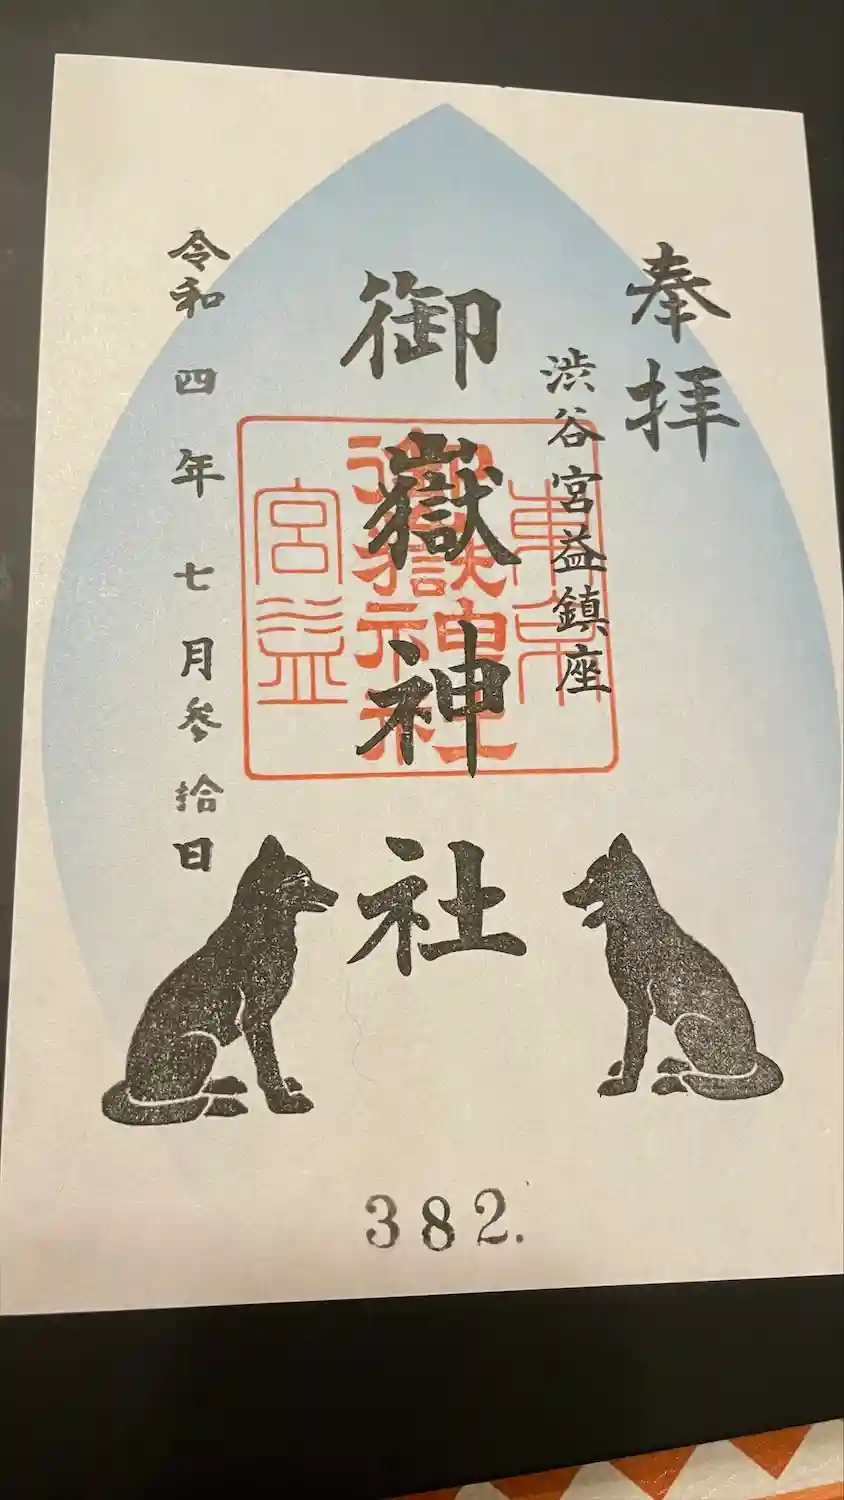 奉拝
渋谷宮益鎮座
御嶽神社
東京
御嶽神社
宮益
令和四年七月参拾日
382.